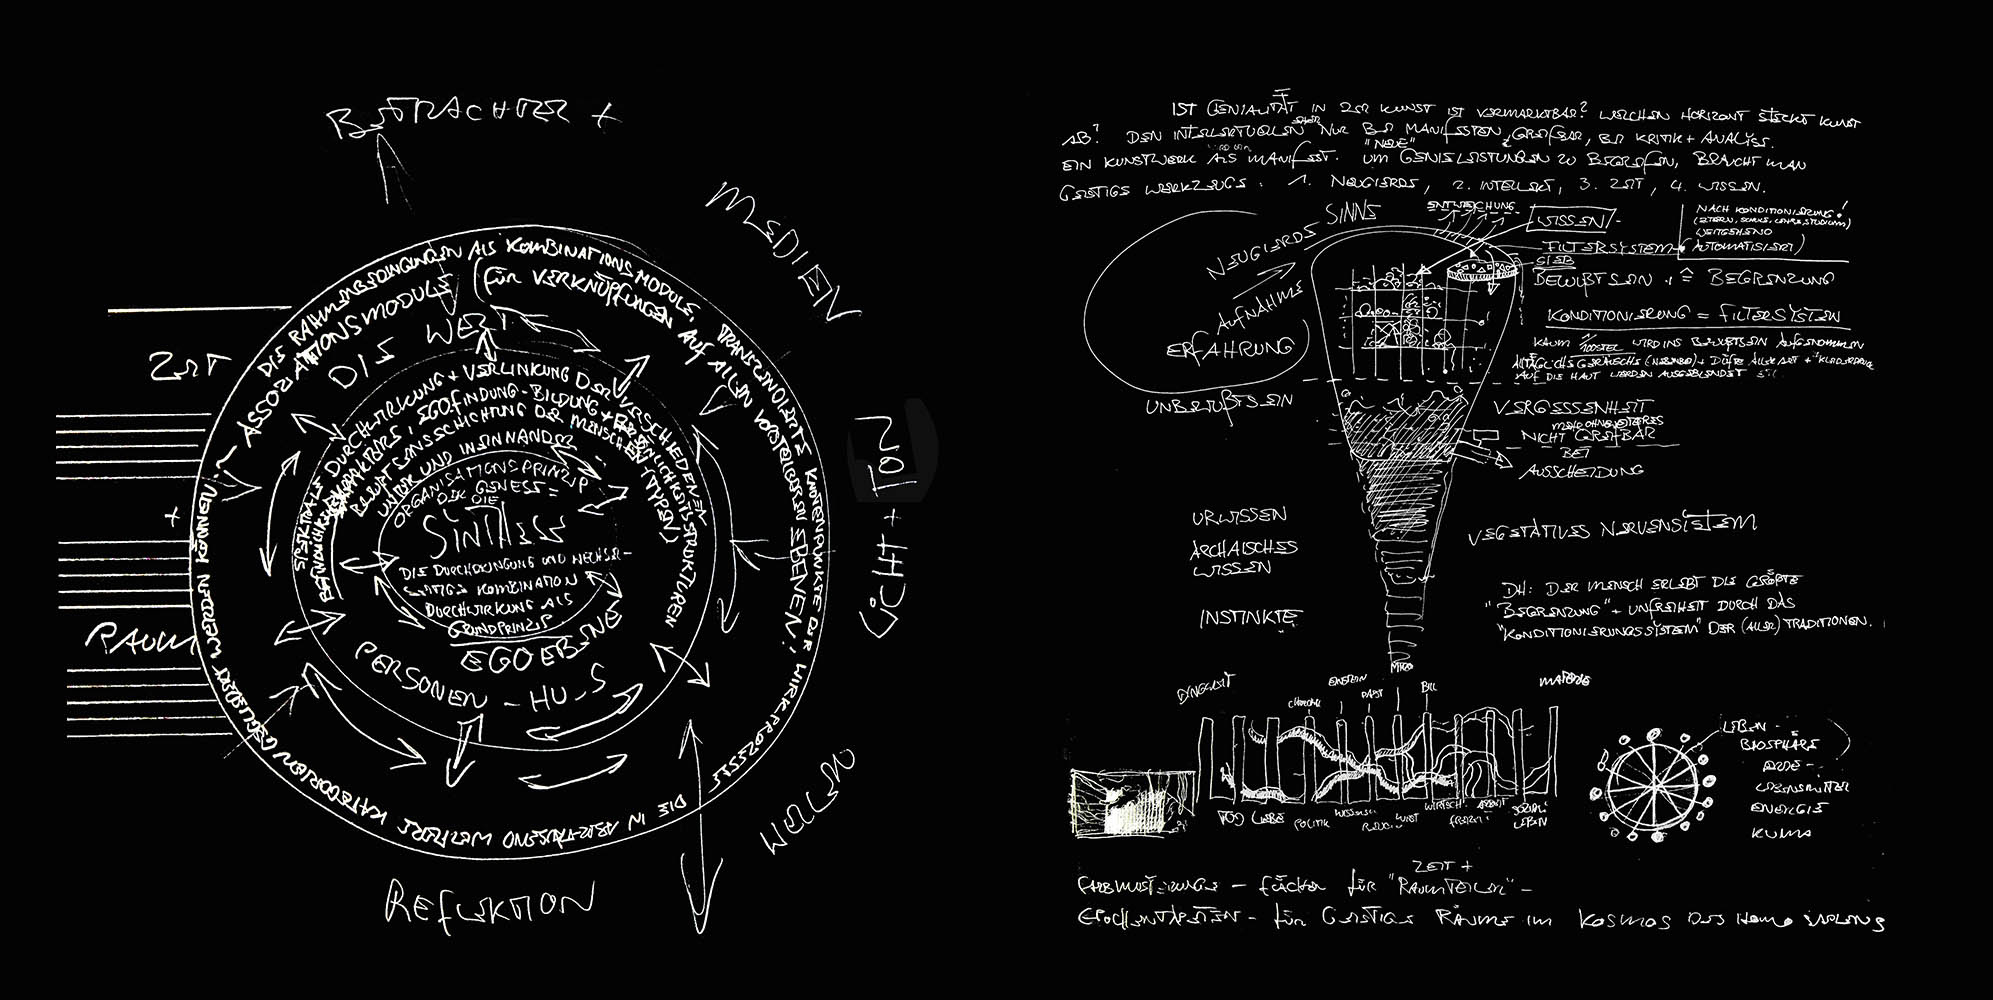 BETRACHTER +
MEDIEN
ZEIT
+
RAUM
LICHT + TON
WELLEN
REFLEKTION
DIE RAHMENBEDINGUNGEN ALS KOMBINATIONSMODULE, TRANSZENDIERTE KNOTENPUNKTE DER WIRKPROZESSE
DIE IN WEITERE KATEGORIEN GEGLIEDERT WERDEN KÖNNEN!
ASSOZIATIONSMODULE (FÜR VERKNÜPFUNGEN AUF ALLEN VORSTELLBAREN EBENEN!
DIE WELT
SPEKTRALE DURCHWIRKUNG + VERLINKUNG DER VERSCHIEDENEN
EGOFINDUNG - BILDUNG + PERSÖNLICHKEITSSTRUKTUREN
BEWUPTSEINSSCHICHTUNG DER MENSCHEN (TYPEN)
UNTER UND INEINANDER
ORGANISATIONSPRINZIP
DER GENESE =
DIE
SINTHESE
DIE DURCHDRINGUNG UND WECHSEL-
SEITIGE KOMBINATION
DURCHWIRKUNG ALS
GRUNDPRINZIP
EGOEBENE
PERSONEN - HU - S
IST GENIALITÄT IN DER KUNST IST VERMARKTBAR? WELCHEN HORIZONT STECKT KUNST
AB? DEN INTELLEKTUELLEN NUR BEI MANIFESTEN, GREIFBAR, BEI KRITIK + ANALISE.
EIN KUNSTWERK ALS MANIFEST. UM "NEUE" GENIELEISTUNGEN ZU BEGREIFEN, BRAUCHT MAN
GEISTIGE WERKZEUGE: 1. NEUGIERDE, 2. INTELLEKT, 3. ZEIT, 4. WISSEN.
SINNE
ENTWEICHUNG
WISSEN
NACH KONDITIONIERUNG!
(ELTERN, SCHULE, LEHRE, STUDIUM)
WEITGEHEND
AUTOMATISIERT)
NEUGIERDE
FILTERSYSTEM
SIEB
AUFNAHME
BEWUßTSEIN ≙ BEGRENZUNG
ERFAHRUNG
KONDITIONIERUNG = FILTERSYSTEM
KAUM WIRD INS BEWUßTSEIN AUFGENOMMEN
ALLTÄGLICHE GERÄUSCHE + DÜFTE ALLER ART +
AUF DIE HAUT WERDEN AUSGEBLENDET
UNBEWUßTSEIN
VERGESSENHEIT
MEHR OHNE WEITERES
NICHT GREIFBAR
BEI
AUSSCHEIDUNG
URWISSEN
ARCHAISCHES
WISSEN
VEGETATIVES NERVENSISTEM
INSTINKTE
DH: DER MENSCH ERLEBT DIE GRÖßTE
"BEGRENZUNG" + UNFREIHEIT DURCH DAS
"KONDITIONIERUNGSSISTEM" DER (ALLER) TRADITIONEN.
EINSTEIN
PAPST
BILL
TOD
LIEBE
POLITIK
WISSENSCH.
WIRTSCH.
ARBEIT
FREIZEIT
SOZIAL
LEBEN
LEBEN -
BIOSPHÄRE
ERDE -
LEBENSMITTEL
ENERGIE
KLIMA
ZEIT +
FÄCHER FÜR "RAUMTEILER" -
FÜR GEISTIGE RÄUME IM KOSMOS DES HOMO